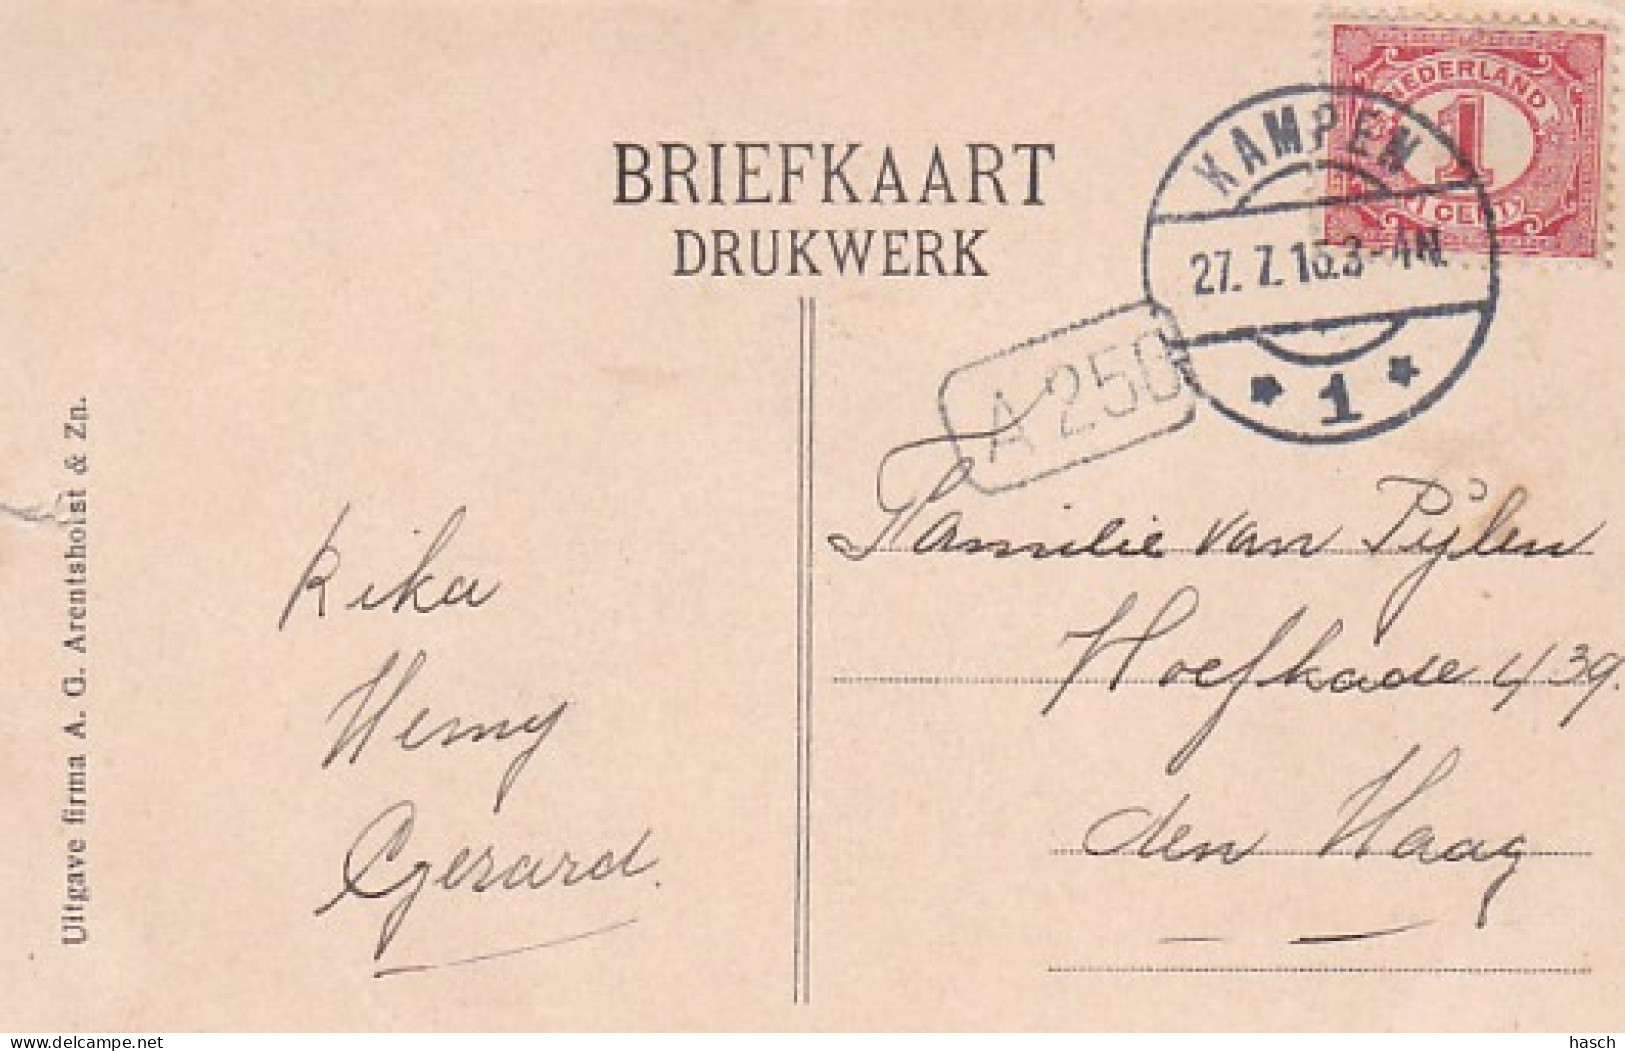 BRIEFKAART
DRUKWERK
NEDERLAND
1
1 CENT
KAMPEN
27. 7. 15.3-4N.
* 1 *
A 250
Uitgave firma A. G. Arentshorst & Zn.
Rika
Henny
Gerard.
Familie van Pijlen
Hoefkade 439.
den Haag
hasch
© delcampe.net